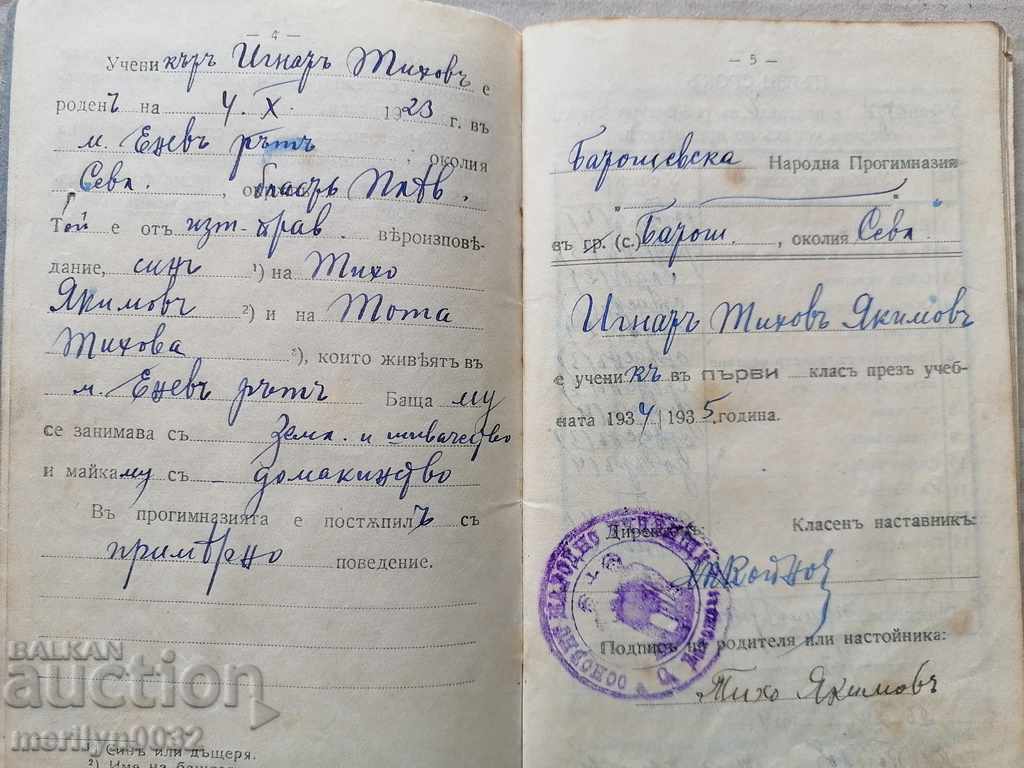 — 4 —
Ученикътъ Игнаръ Тиховъ е
роденъ на 4. X. 1923 г. въ
м. Еневъ рътъ, околия
Севл.
Той е отъ изт-прав. вѣроизповѣ-
дание, синъ ¹) на Тихо
Якимовъ ²) и на Тота
Тихова ³), които живѣятъ въ
м. Еневъ рътъ Баща му
се занимава съ Земл. и шивачество
и майка му съ домакинство
Въ прогимназията е постѫпилъ съ
примѣрно поведение.
¹) Синъ или дъщеря.
²) Име на
BALKAN
auction
merilyn0032
— 5 —
Батошевска Народна Прогимназия
" "
въ гр. (с.) Батош., околия Севл.
Игнаръ Тиховъ Якимовъ
е ученикъ въ първи класъ презъ учеб-
ната 1934/1935 година.
Класенъ наставникъ:
Подпись на родителя или настойника:
Тихо Якимовъ
ОСНОВНО НАРОДНО УЧИЛИЩЕ